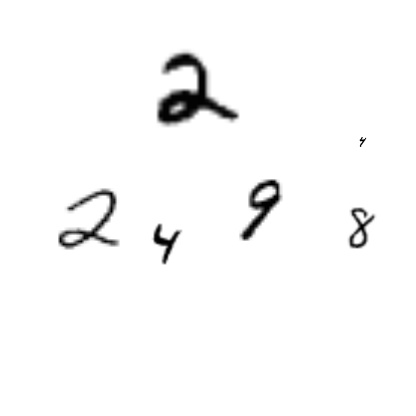 2
4
2 4 9 8